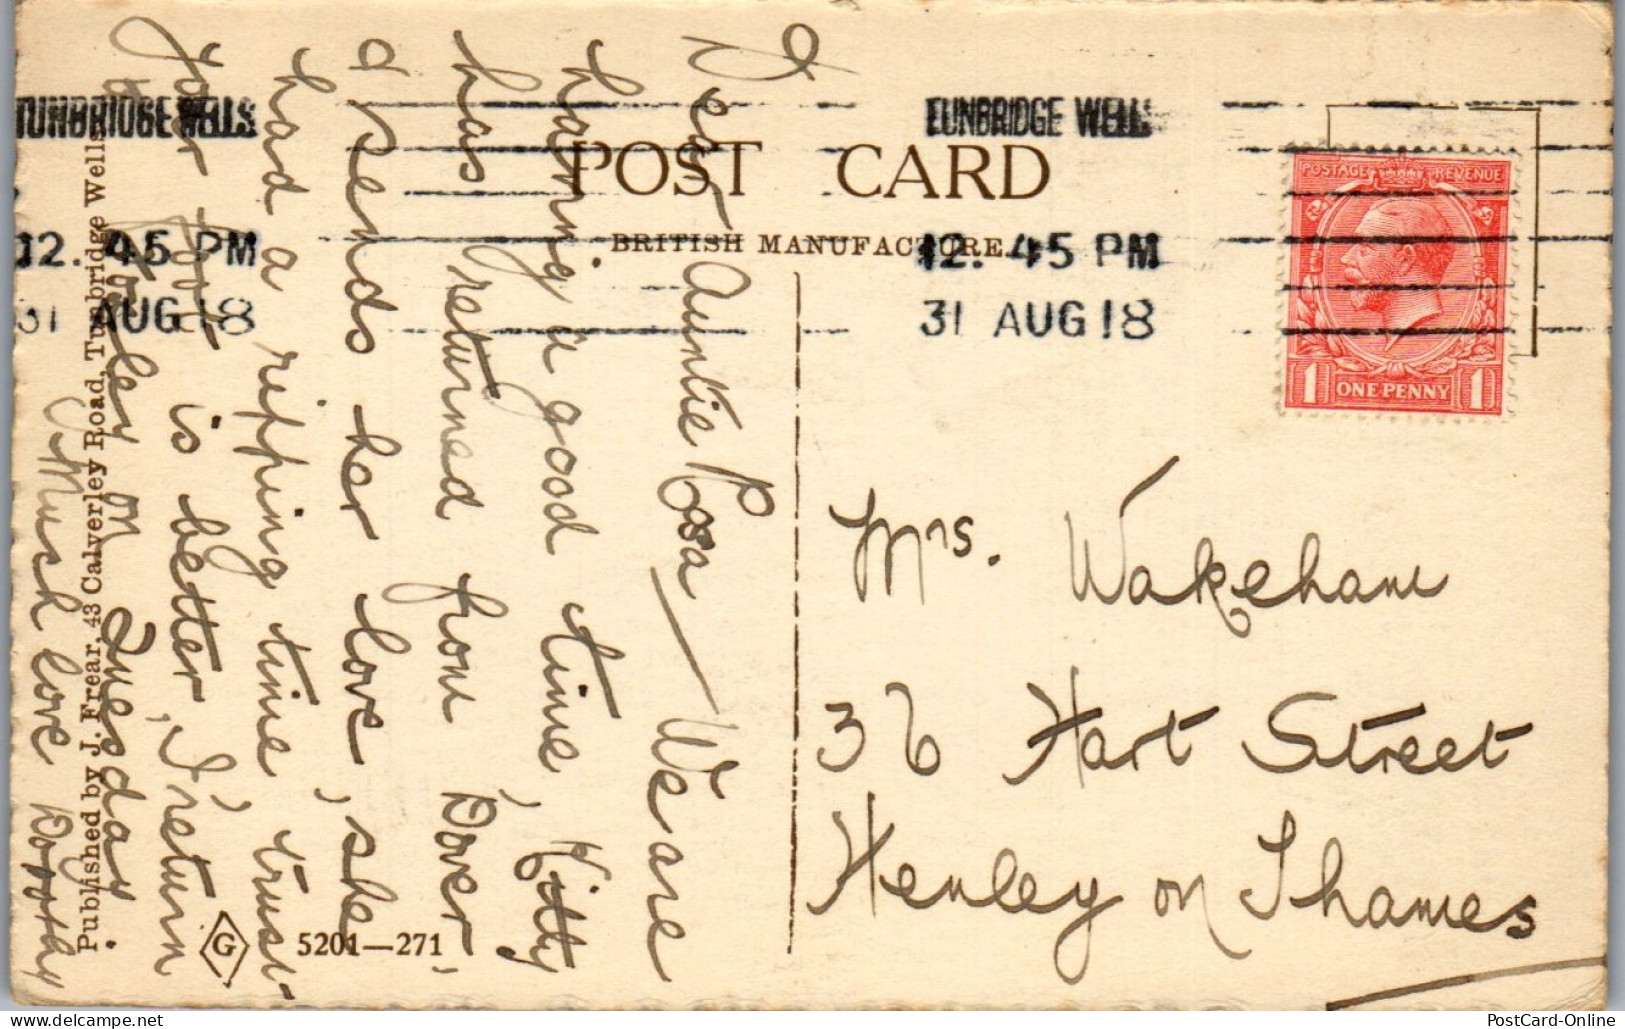 TUNBRIDGE WELLS
12. 45 PM
31 AUG 18
TUNBRIDGE WELLS
12. 45 PM
31 AUG 18
POST CARD
BRITISH MANUFACTURE.
POSTAGE REVENUE
1 ONE PENNY 1
Dear Auntie Rosa — We are
having a good time, Kitty
has returned from Dover,
& sends her love, she
had a ripping time, trust
your foot is better, I return
to Henley on Tuesday
Much love Dorothy
Mrs. Wakeham
36 Hart Street
Henley on Thames
Published by J. Frear, 43 Calverley Road, Tunbridge Wells.
G
5201—271
PostCard-Online